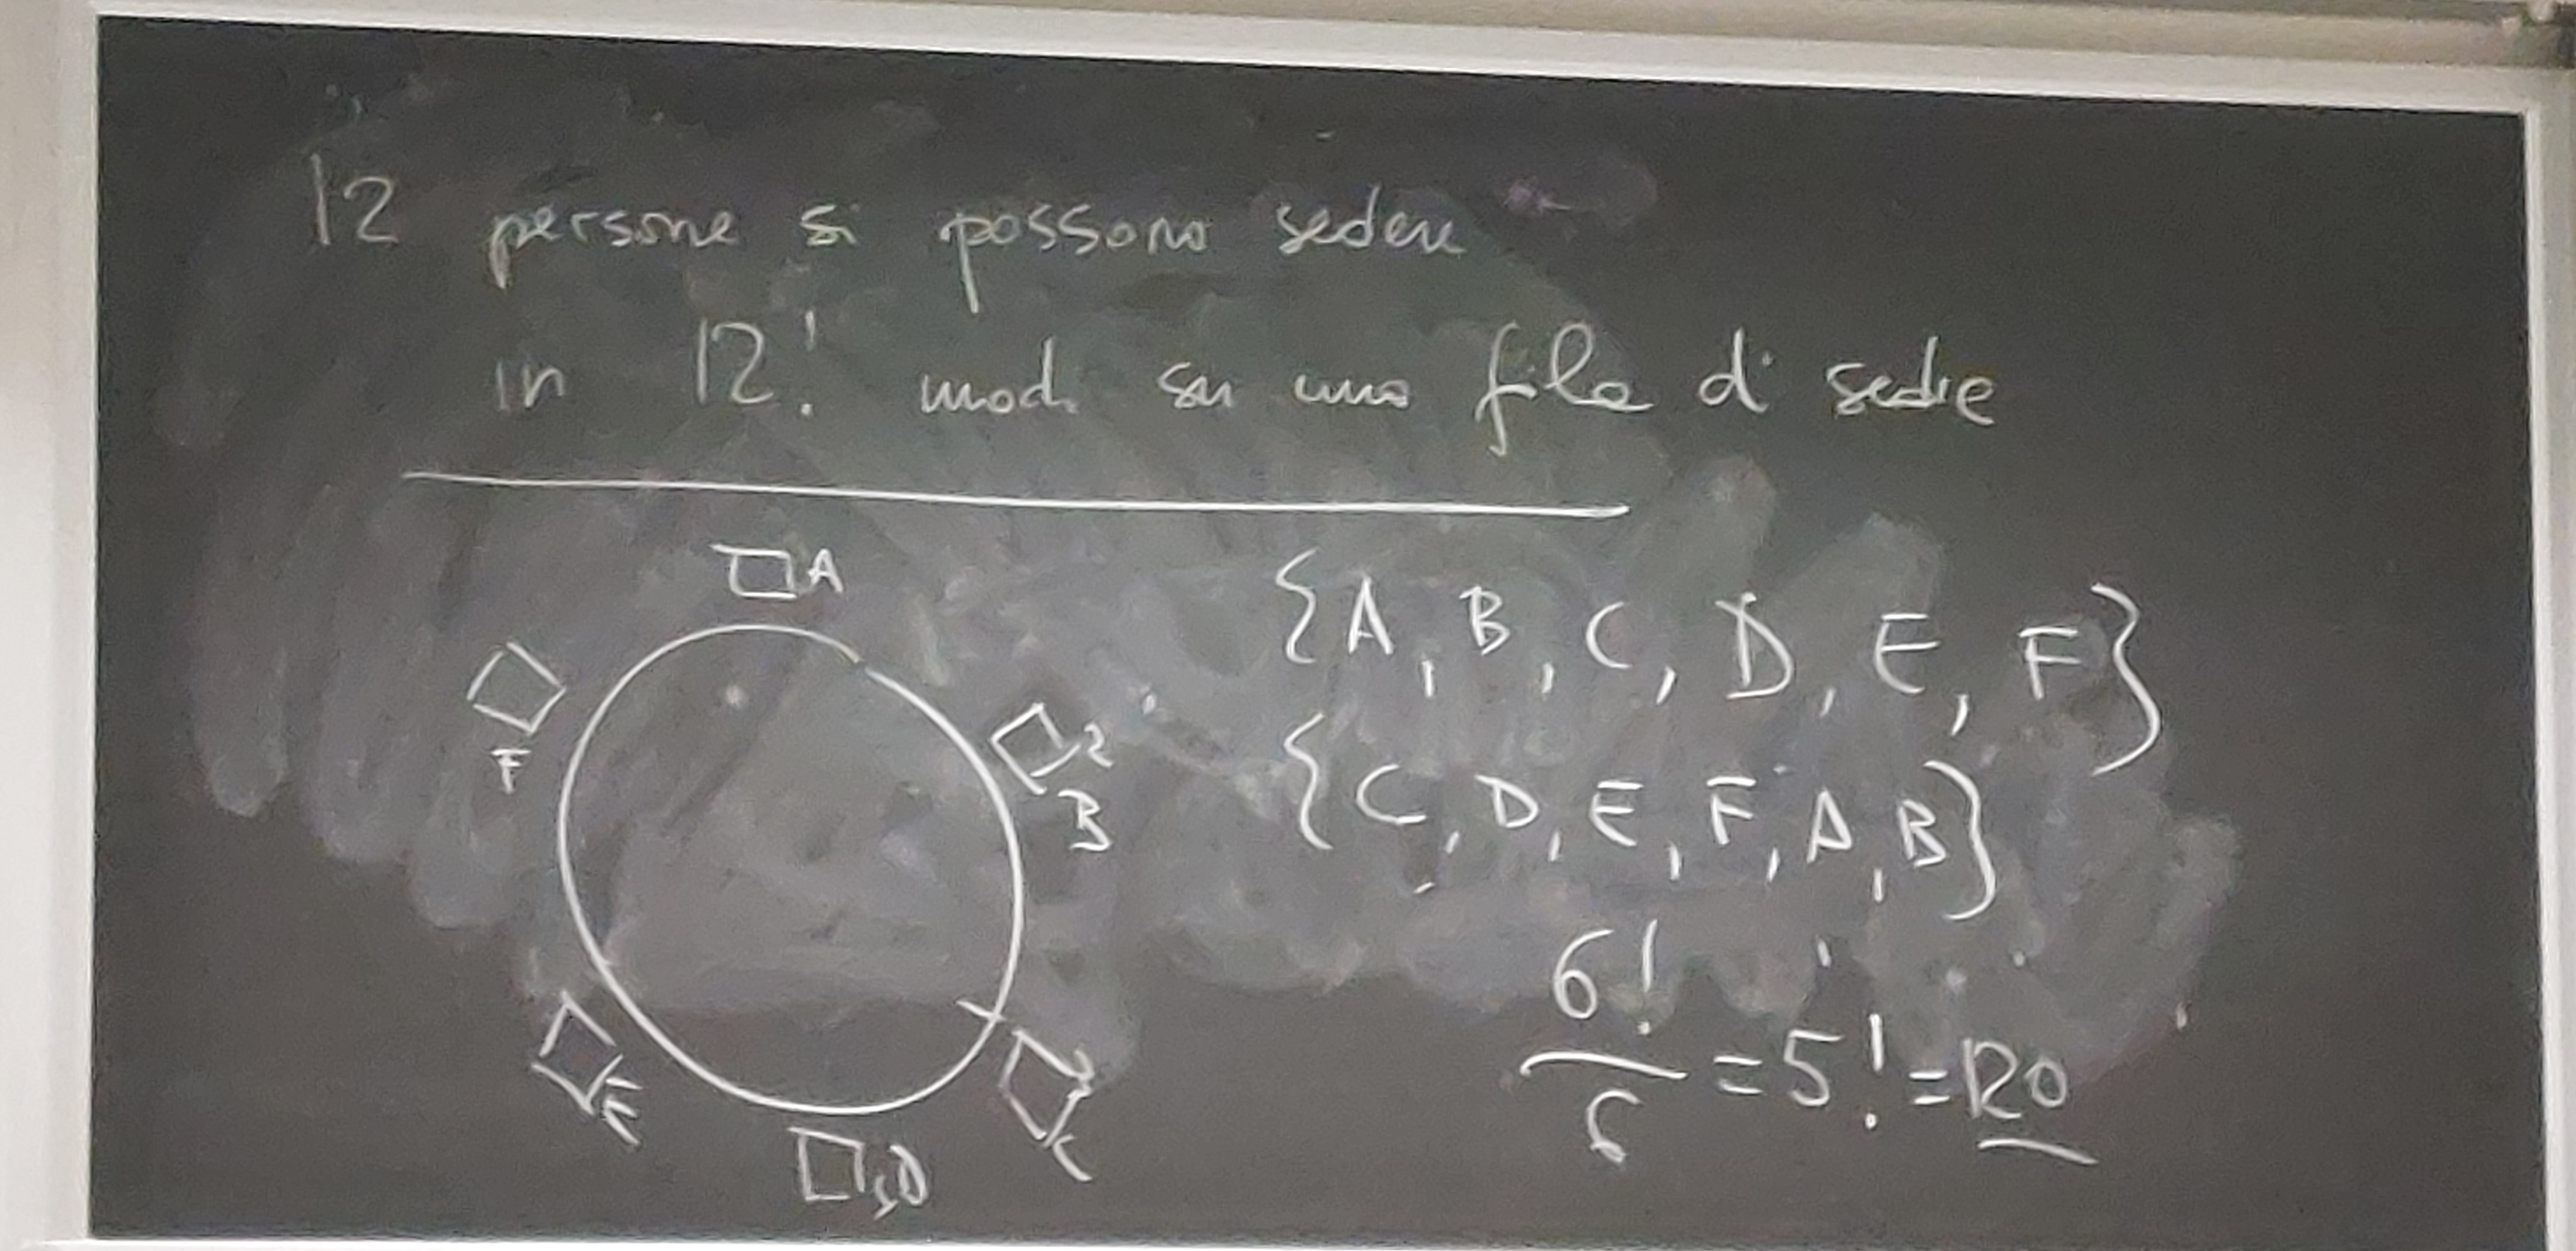 12 persone si possono sedere
in 12! modi su una fila di sedie
A
{A, B, C, D, E, F}
F
B
{C, D, E, F, A, B}
6!/6 = 5! = 120
E
C
D